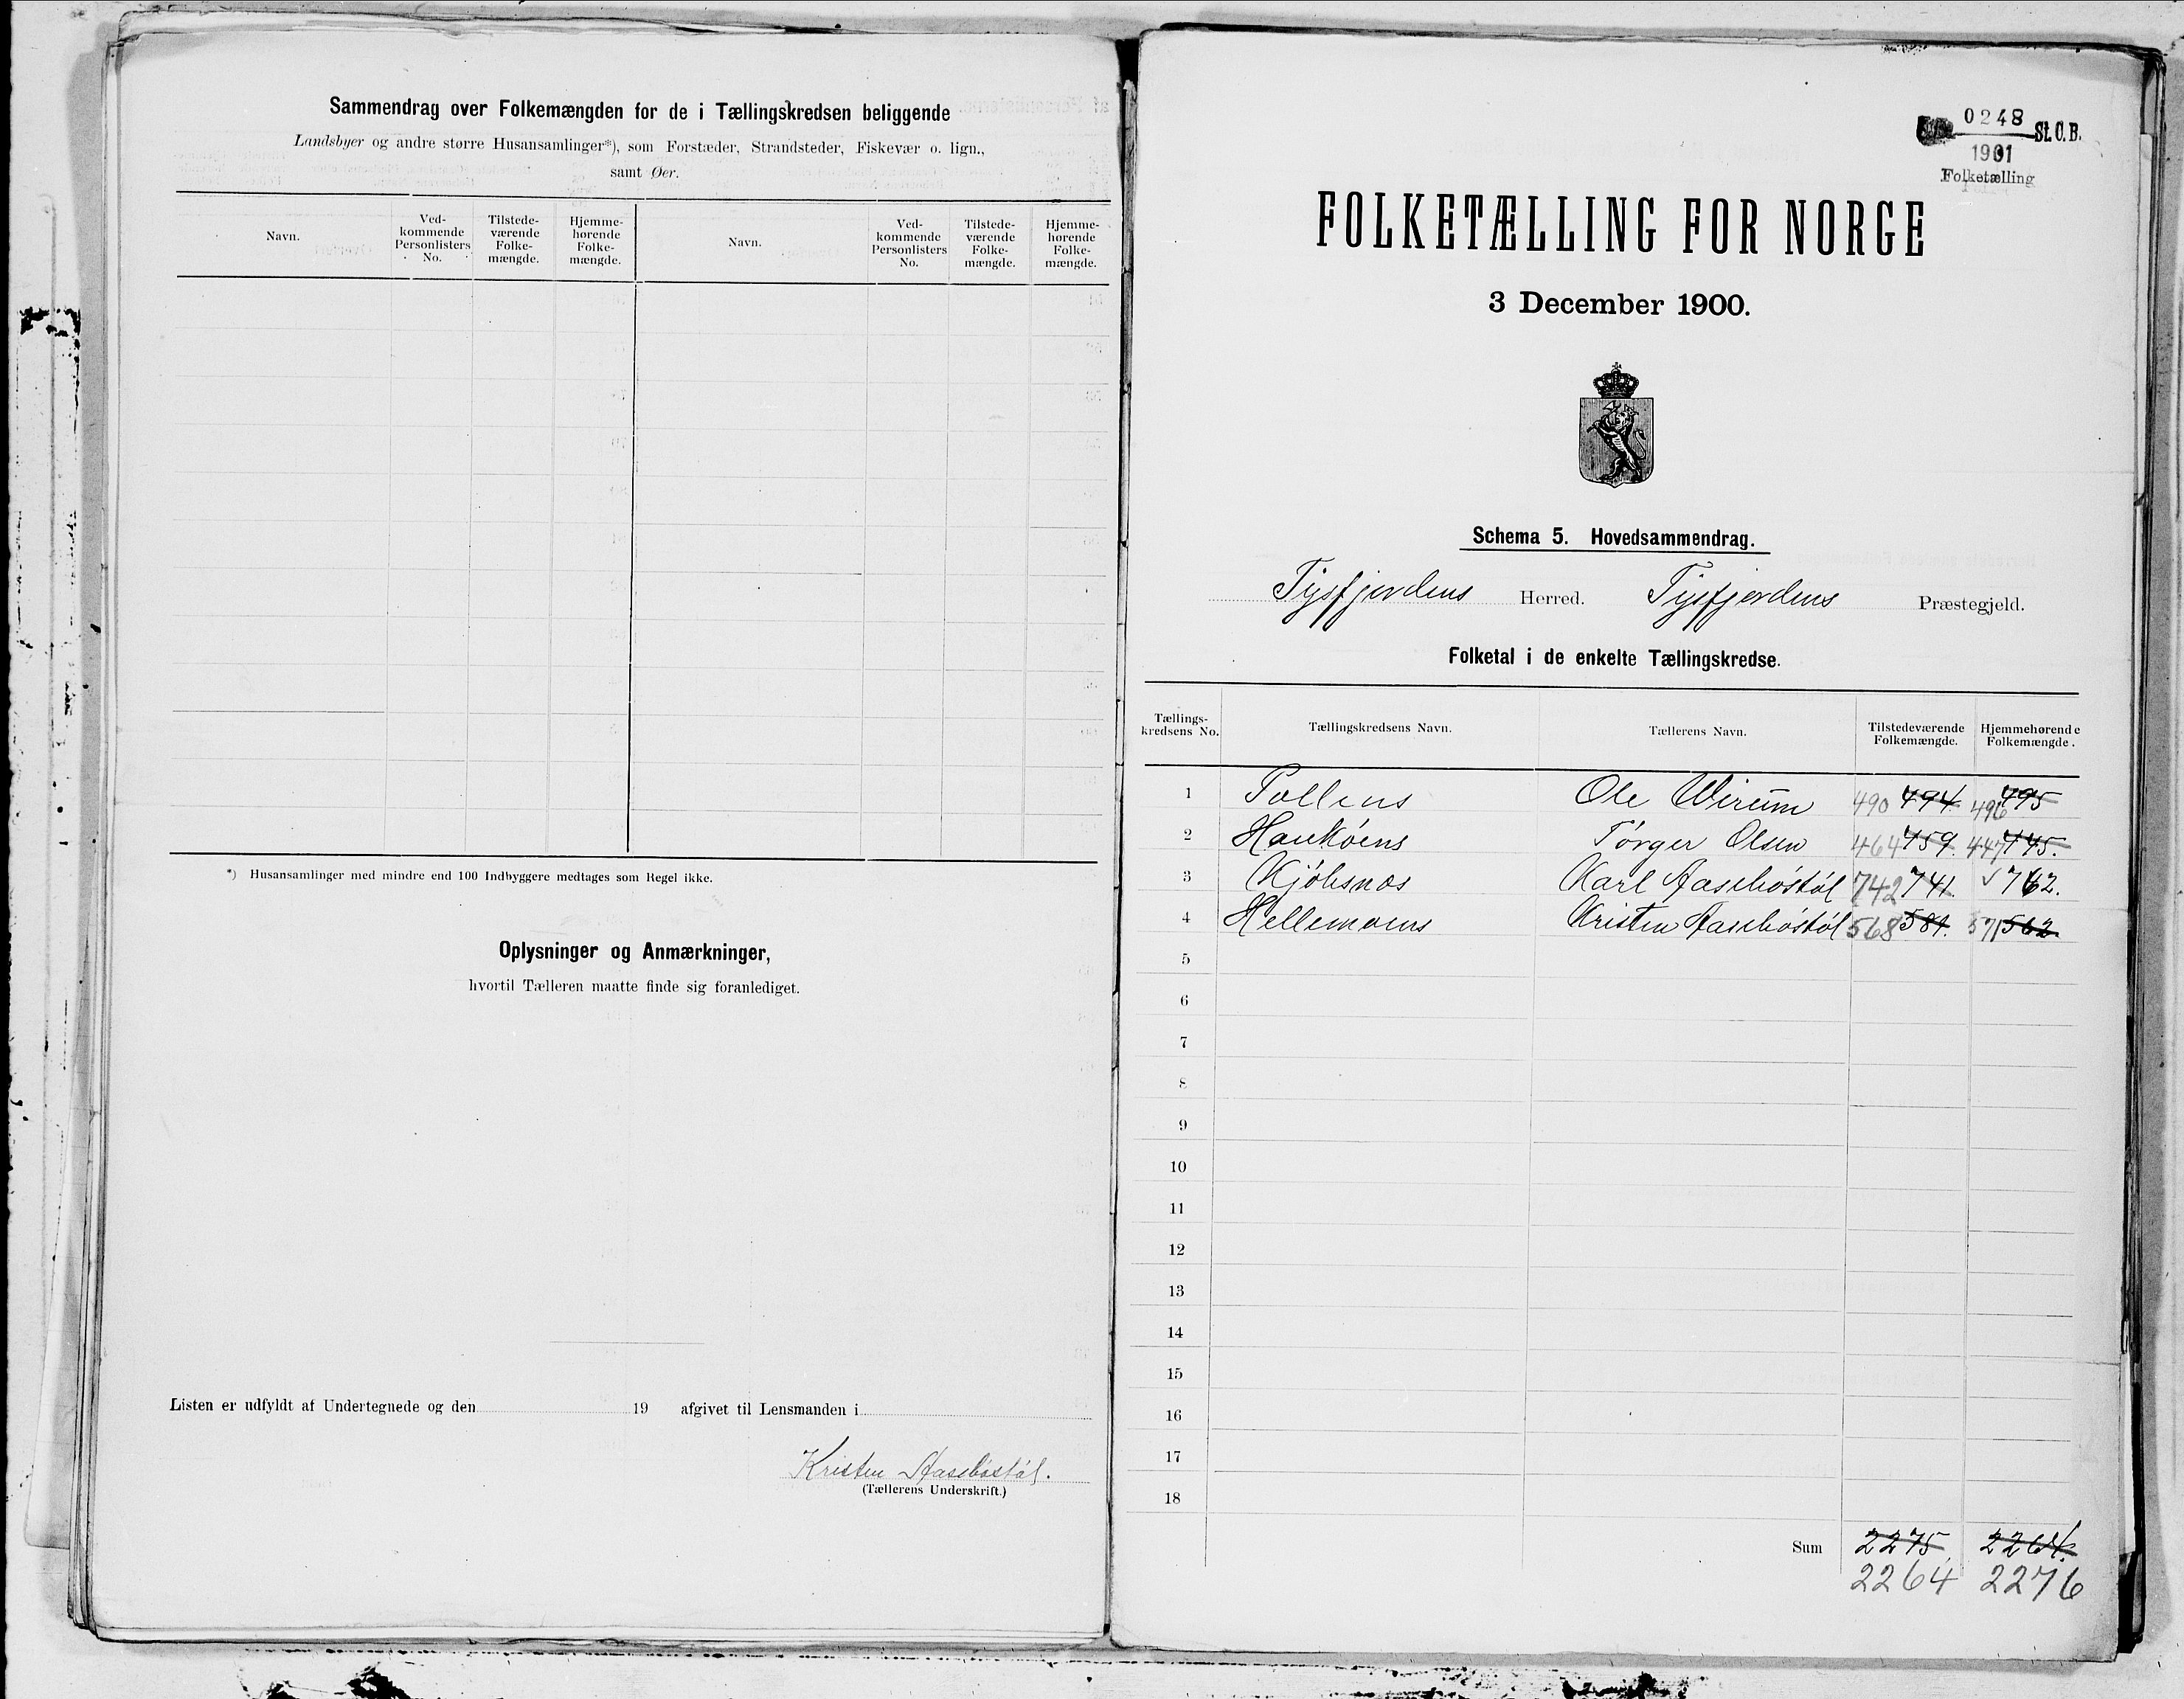 Sammendrag over Folkemængden for de i Tællingskredsen beliggende
Landsbyer og andre større Husansamlinger*), som Forstæder, Strandsteder, Fiskevær o. lign.,
samt Øer.
Navn.
Ved-
kommende
Personlisters
No.
Tilstede-
værende
Folke-
mængde.
Hjemme-
hørende
Folke-
mængde.
Navn.
Ved-
kommende
Personlisters
No.
Tilstede-
værende
Folke-
mængde.
Hjemme-
hørende
Folke-
mængde.
*) Husansamlinger med mindre end 100 Indbyggere medtages som Regel ikke.
Oplysninger og Anmærkninger,
hvortil Tælleren maatte finde sig foranlediget.
Listen er udfyldt af Undertegnede og den 19 afgivet til Lensmanden i
Kristen Aasebøstøl.
(Tællerens Underskrift.)
0248 St. C. B.
1901
Folketælling
FOLKETÆLLING FOR NORGE
3 December 1900.
Schema 5. Hovedsammendrag.
Tysfjordens Herred. Tysfjordens Præstegjeld.
Folketal i de enkelte Tællingskredse.
Tællings-
kredsens No.
Tællingskredsens Navn.
Tællerens Navn.
Tilstedeværende
Folkemængde.
Hjemmehørende
Folkemængde.
1 Pollens Ole Wirum 490 494. 496 495
2 Haukøens Tørger Olsen 464 459. 447 445.
3 Kjøbsnæs Karl Aasebøstøl 742 741. 762.
4 Hellemoens Kristen Aasebøstøl 568 581. 571 562.
5
6
7
8
9
10
11
12
13
14
15
16
17
18
Sum 2275. 2264.
2264 2276